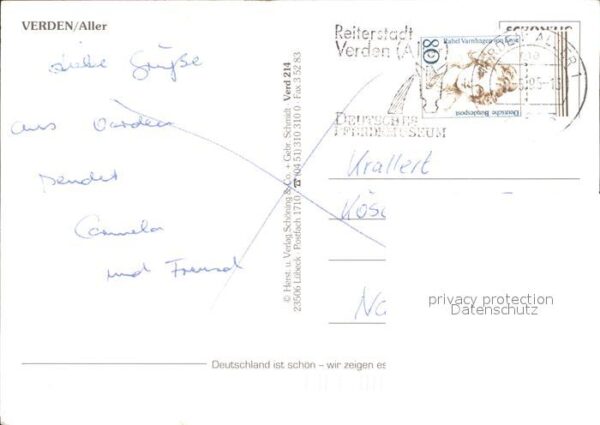 VERDEN/Aller
liebe Grüße
aus Verden
sendet
Carmela
und Freund
© Herst. u. Verlag Schöning & Co. + Gebr. Schmidt
23506 Lübeck · Postfach 1710 / ☎ (04 51) 310 310 0 · Fax 3 52 83
Verd 214
Reiterstadt
Verden (Aller)
DEUTSCHES
PFERDEMUSEUM
80
Rahel Varnhagen von Ense
Deutsche Bundespost
VERDEN, ALLER 1
Krallert
Kös
Na
privacy protection
Datenschutz
Deutschland ist schön – wir zeigen es